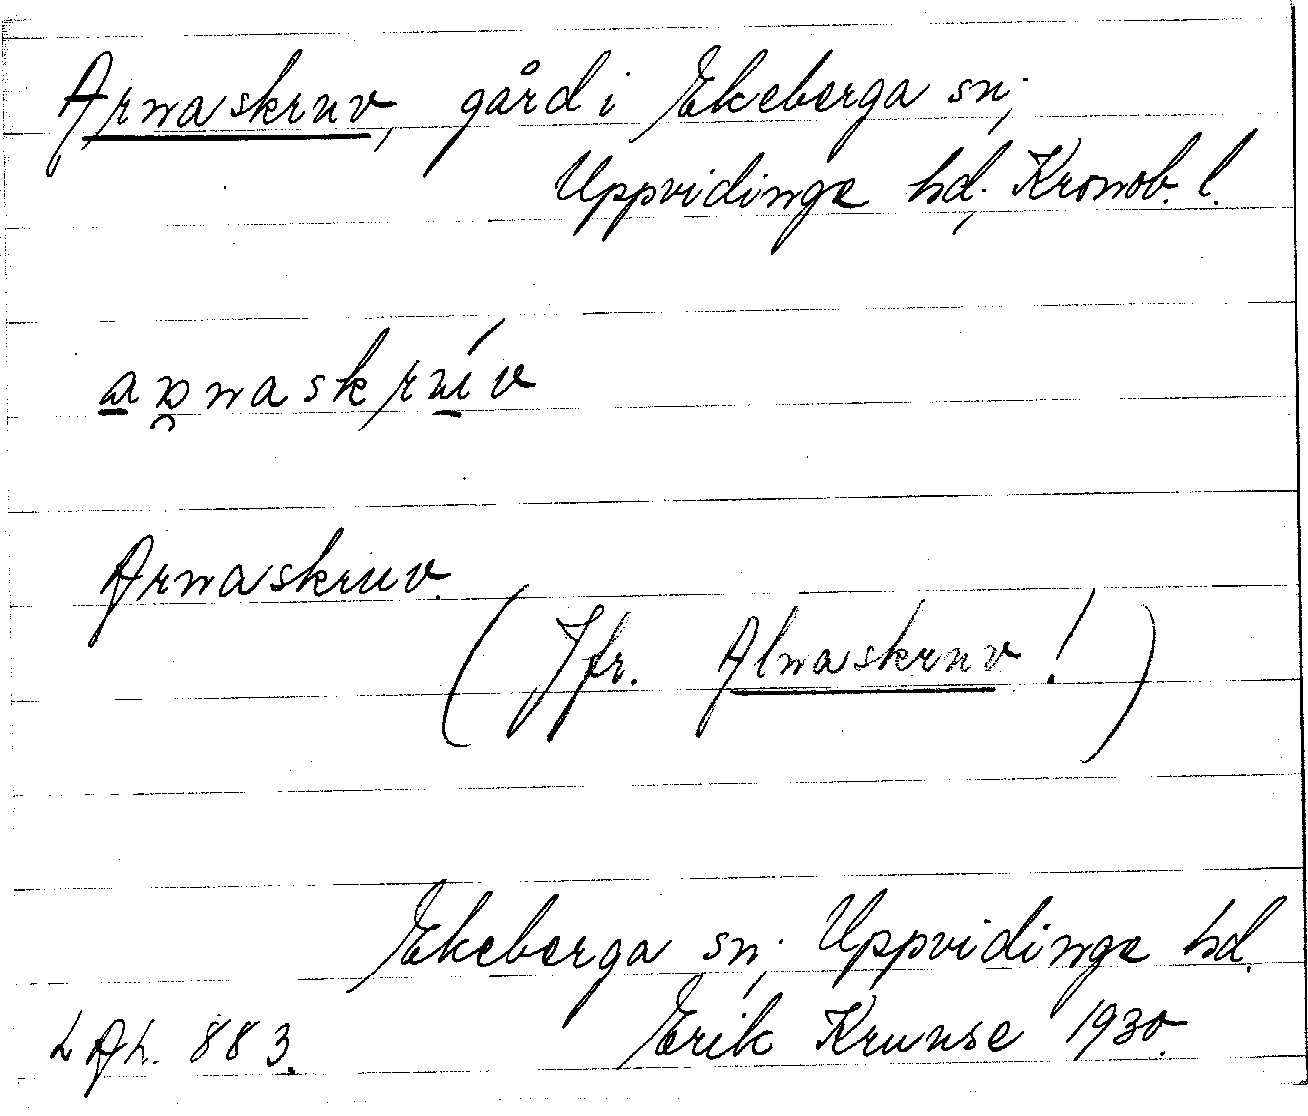 Arnaskruv, gård i Ekeberga sn,
Uppvidinge hd, Kronob. l.
Arnaskruv.
(Jfr. Alnaskruv!)
Ekeberga sn, Uppvidinge hd.
LAL. 883. Erik Kruuse 1930.